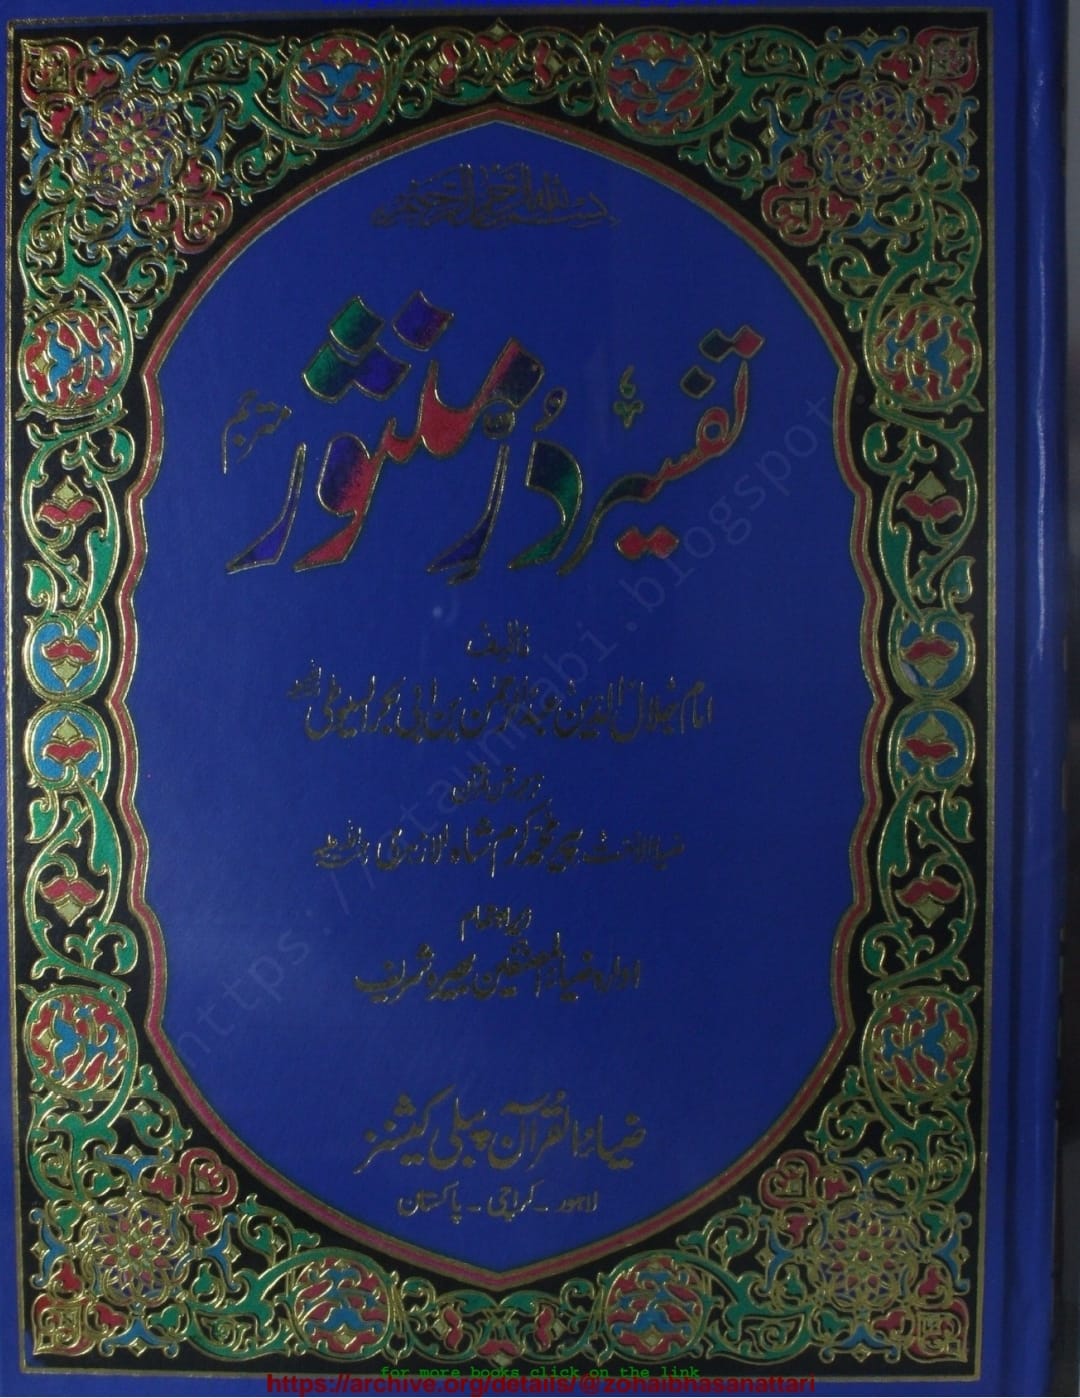 بسم الله الرحمن الرحيم
تفسیر دُرِّ منثور مترجم
۶
تالیف
امام جلال الدین عبدالرحمٰن بن ابی بکر السیوطی
ضیاء الامت پیر محمد کرم شاہ الازہری
زیر اہتمام
ادارہ ضیاء المصنفین بھیرہ شریف
ضیاء القرآن پبلی کیشنز
لاہور ۔ کراچی ۔ پاکستان
for more books click on the link
https://archive.org/details/@zohaibhasanattari